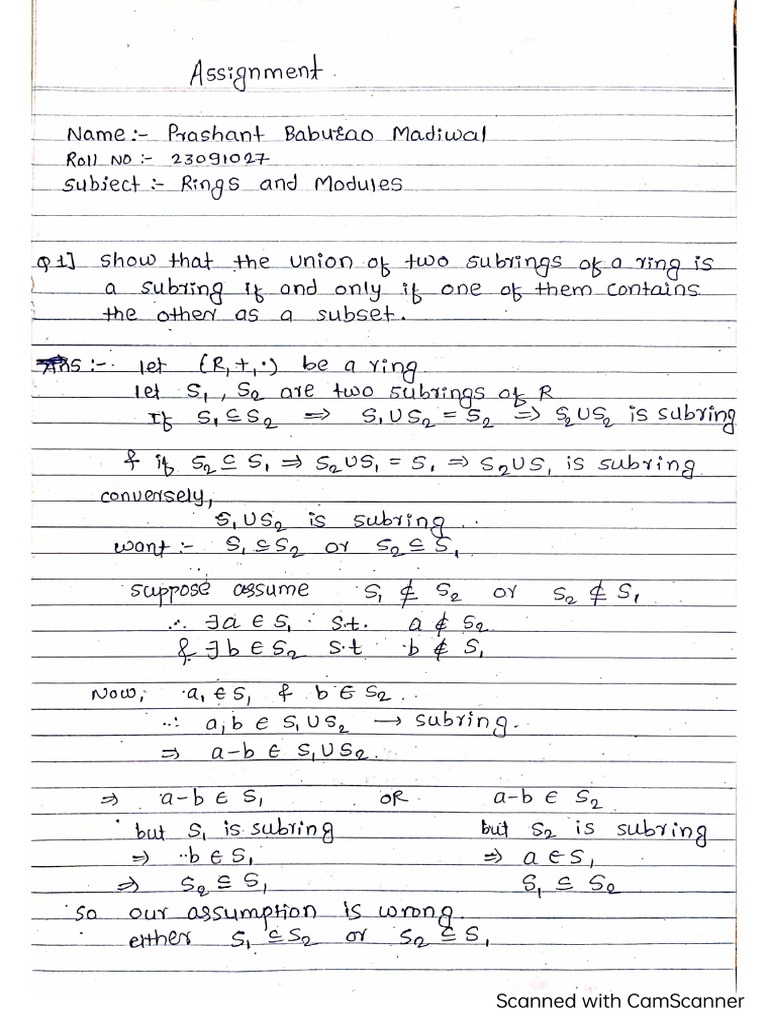 Assignment.
Name :- Prashant Baburao Madiwal
Roll NO :- 23091027
Subject :- Rings and Modules
Q 1] show that the union of two subrings of a ring is
a subring if and only if one of them contains
the other as a subset.
Ans :- let (R, +, ·) be a ring
let S₁, S₂ are two subrings of R
If S₁ ⊆ S₂ ⇒ S₁ ∪ S₂ = S₂ ⇒ S₂ ∪ S₂ is subring
& if S₂ ⊆ S₁ ⇒ S₂ ∪ S₁ = S₁ ⇒ S₂ ∪ S₁ is subring
conversely,
S₁ ∪ S₂ is subring ..
want :- S₁ ⊆ S₂ or S₂ ⊆ S₁
suppose assume S₁ ⊈ S₂ or S₂ ⊈ S₁
∴ ∃ a ∈ S₁ s.t. a ∉ S₂
& ∃ b ∈ S₂ s.t b ∉ S₁
Now, a, ∈ S₁ & b ∈ S₂ ..
∴ a, b ∈ S₁ ∪ S₂ → subring.
⇒ a-b ∈ S₁ ∪ S₂.
⇒ a-b ∈ S₁ OR a-b ∈ S₂
but S₁ is subring but S₂ is subring
⇒ b ∈ S₁ ⇒ a ∈ S₁
⇒ S₂ ⊆ S₁ S₁ ⊆ S₂
So our assumption is wrong
either S₁ ⊆ S₂ or S₂ ⊆ S₁
Scanned with CamScanner